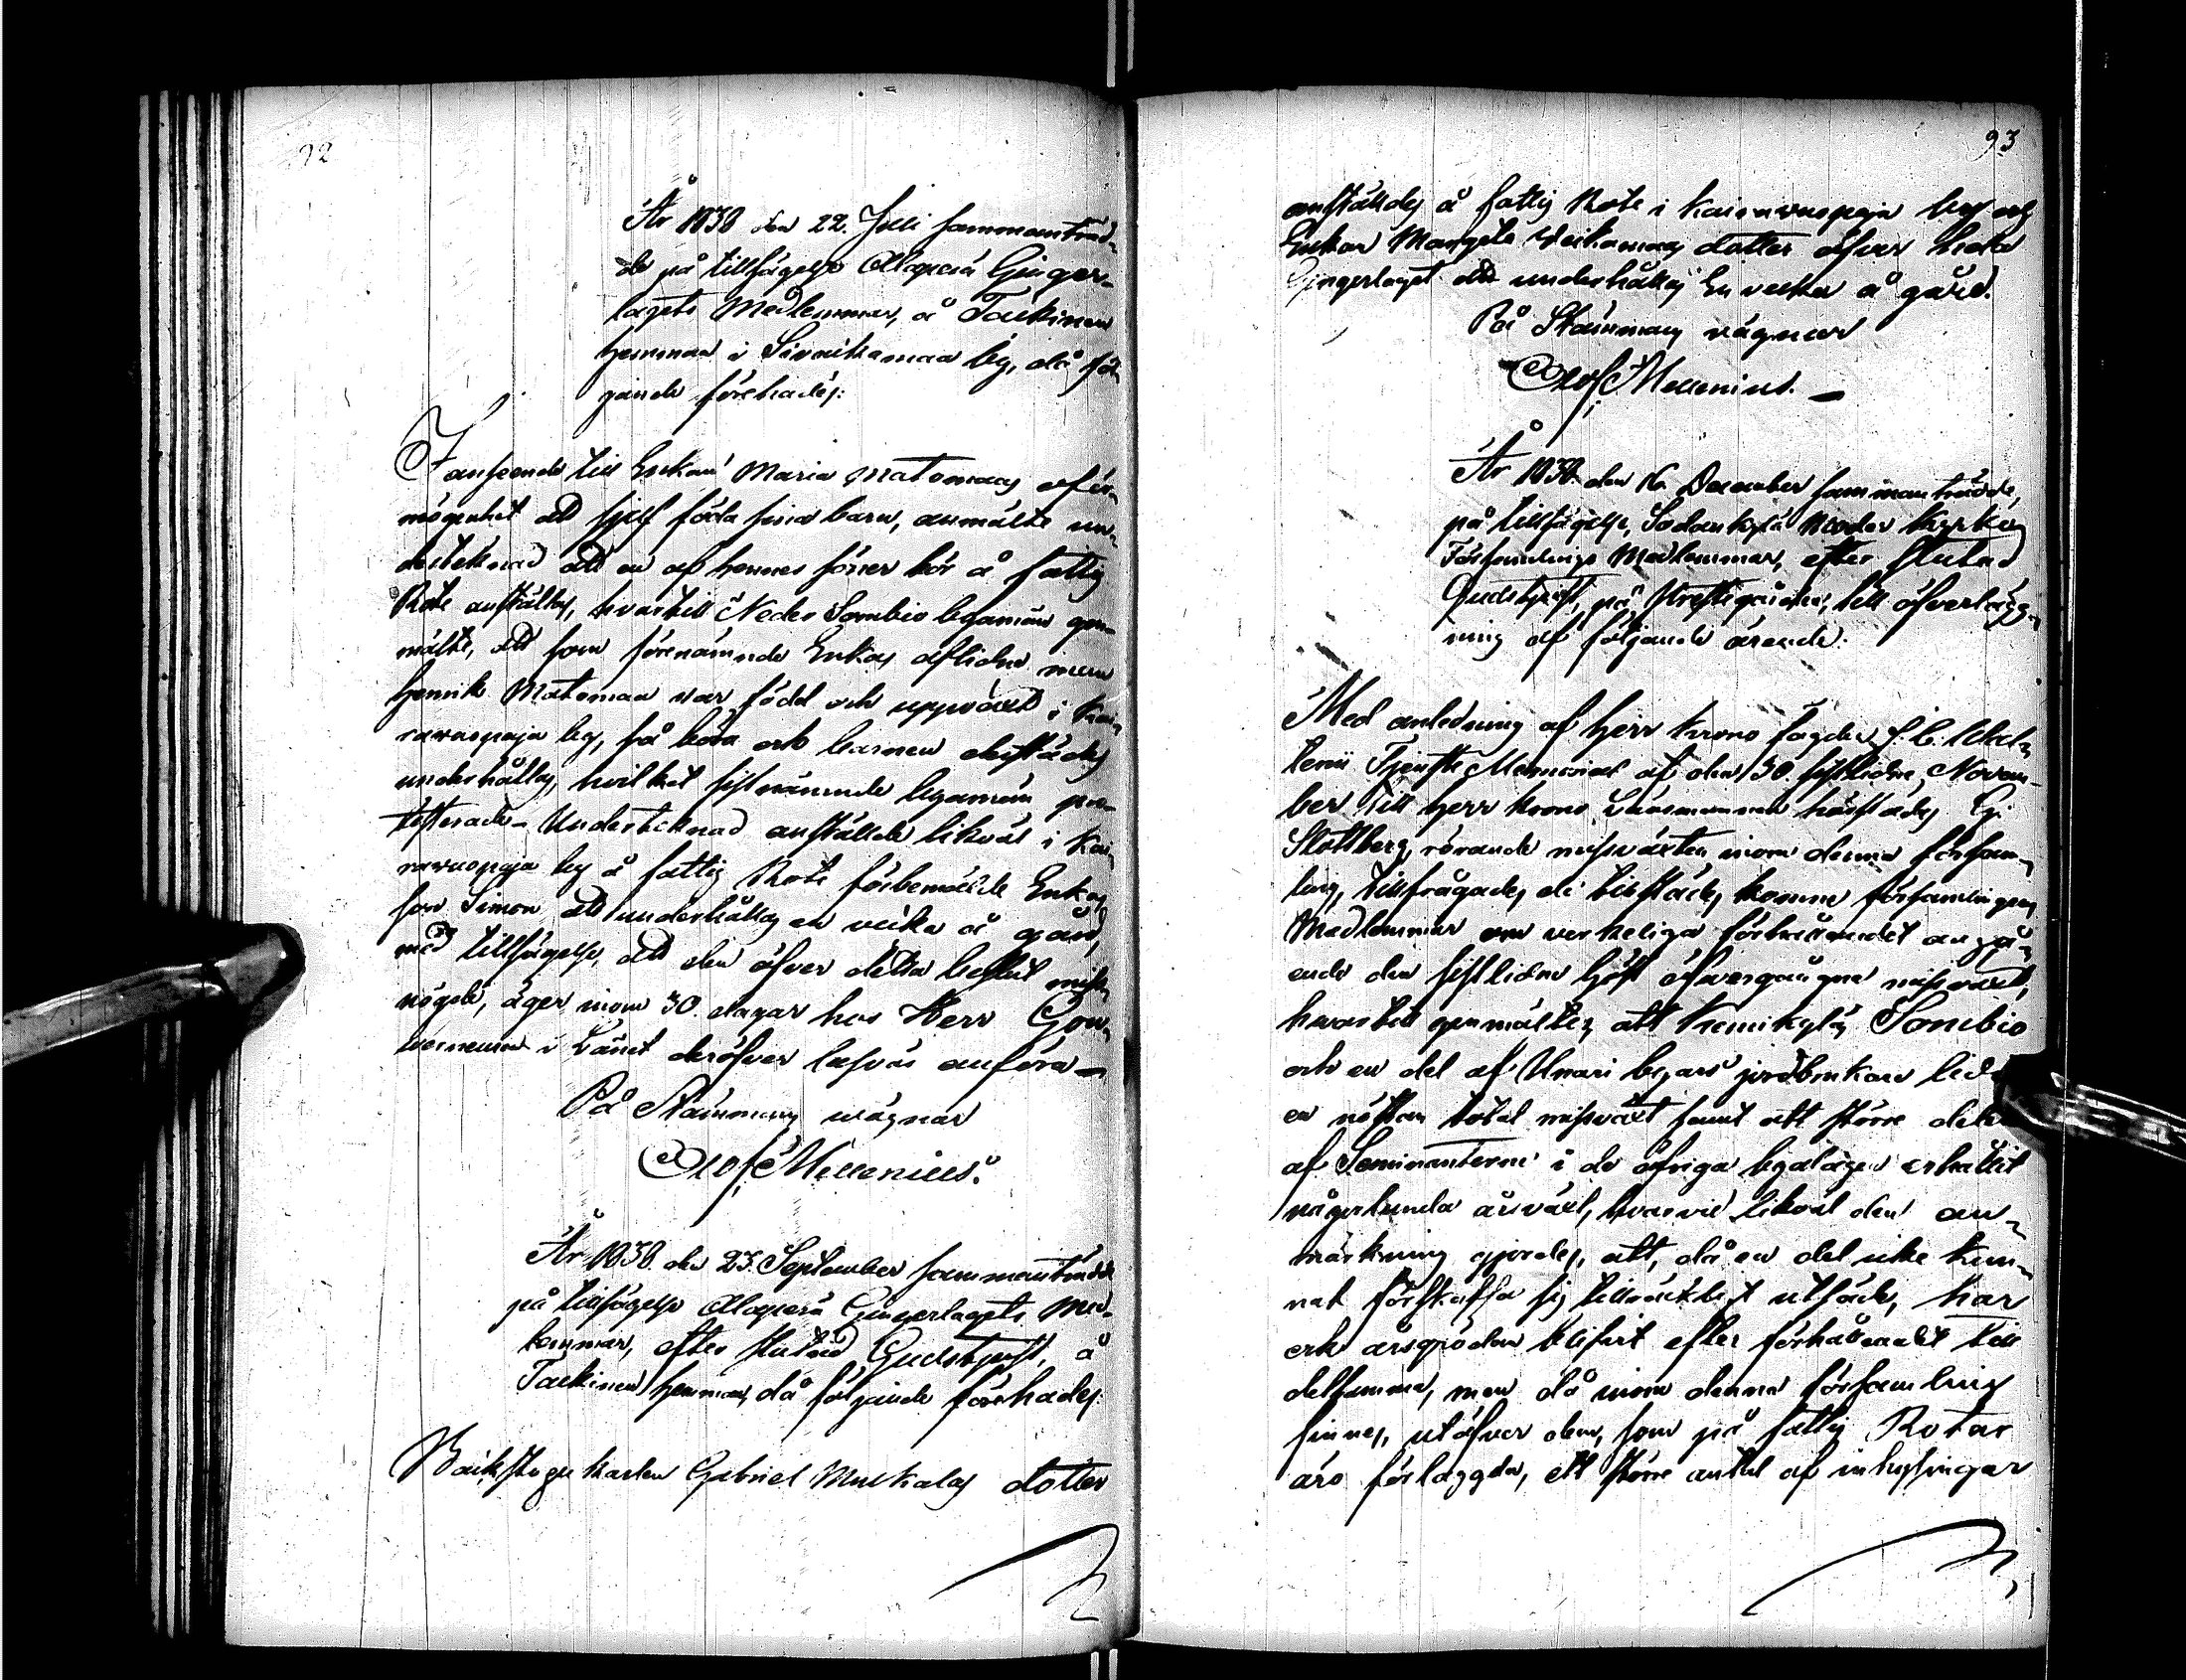 92
År 1838 den 22. Juli sammanträd-
de på tillsägelse Alaperä Gjinger-
lagets Medlemmar, å Tackinen
hemman i Sivaikamaa by, då föl-
jande förehades:
I anseende till Enkan Maria Matomaas oför-
mögenhet att sjelf föda sina barn, anmälte un-
dertecknad att en af hennes söner bör å fattig
Rote anställas, hvartill Neder Sombio byamän gen-
mälte, att som förenämnde Enkas aflidne man
Henrik Matomaa var född och uppväxt i Kai-
ravuopaja by, så böra ock barnen derstädes
underhållas, hvilket sistnämnde byamän pro-
testerade. Undertecknad anställde likväl i Kai-
ravuopaja by å fattig Rote förbemälde Enkas
son Simon att underhållas en vecka å gård,
med tillsägelse, att den öfver detta beslut miss-
nögde, äger inom 30. dagar hos Herr Gou-
verneuren i Länet deröfver besvär anföra
På Stämmans vägnar
Olof Mellenius.
År 1838 den 23. September sammanträdde
på tillsägelse Alaperä Gjingerlagets Med-
lemmar, efter slutad Gudstjenst, å
Tackinen hemman, då följande förehades.
Backstugu karlen Gabriel Mukalas dotter
93
anställdes å fattig Rote i Kairavuopaja by och
Enkan Margeta dotter öfver hela
Gjingerlaget att underhållas En vecka å gård.
På Stämmans vägnar
Olof Mellenius.
År 1838 den 16 December sammanträdde,
på tillsägelse, Sodankylä Moder Kyrko
Församlings Medlemmar, efter slutad
Gudstjenst, på Prestgården, till öfverlägg-
ning af följande ärende:
Med anledning af Herr Krono fogden
Tjenste Memorial af den 30. sistlidne Novem-
ber till Herr Krono Länsmannen härstädes
rörande missväxten inom denna försam-
ling, tillfrågades de tillstädes komne församlingens
Medlemmar om verkeliga förhållandet angå-
ende den sistlidne höst öfvergångne missväxt,
hvartill genmältes, att Kemikylä, Sombio
och en del af Unari byars jordbrukare lidit
en nästan total missväxt samt att större delen
af Seminanterne i de öfriga byalagen erhållit
någorlunda årsväxt, hvarvid likväl den an-
märkning gjordes, att, då en del icke kun-
nat förskaffa sig tillräckligt utsäde, har
ock årsgröden blifvit efter förhållandet till
detsamma, men då inom denna församling
finnes, utöfver dem, som på fattig Rotar
äro förlaggda, ett större antal af inhysingar